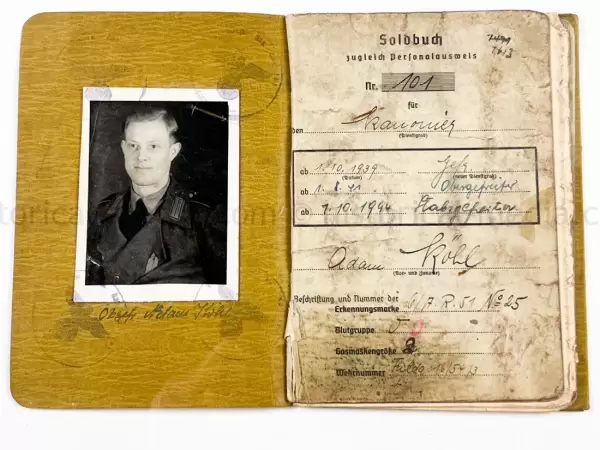 Obgefr. Adam Köhl
Soldbuch
zugleich Personalausweis
Nr. 101
für
den Kanonier
(Dienstgrad)
ab 1.10.1939 Gefr.
(Datum) (neuer Dienstgrad)
ab 1.8.41 Obergefreiter
ab 1.10.1944 Stabsgefreiter
Adam Köhl
(Vor- und Zuname)
Beschriftung und Nummer der
Erkennungsmarke 6/7. R. 51 No 25
Blutgruppe 0
Gasmaskengröße 2
Wehrnummer Fulda